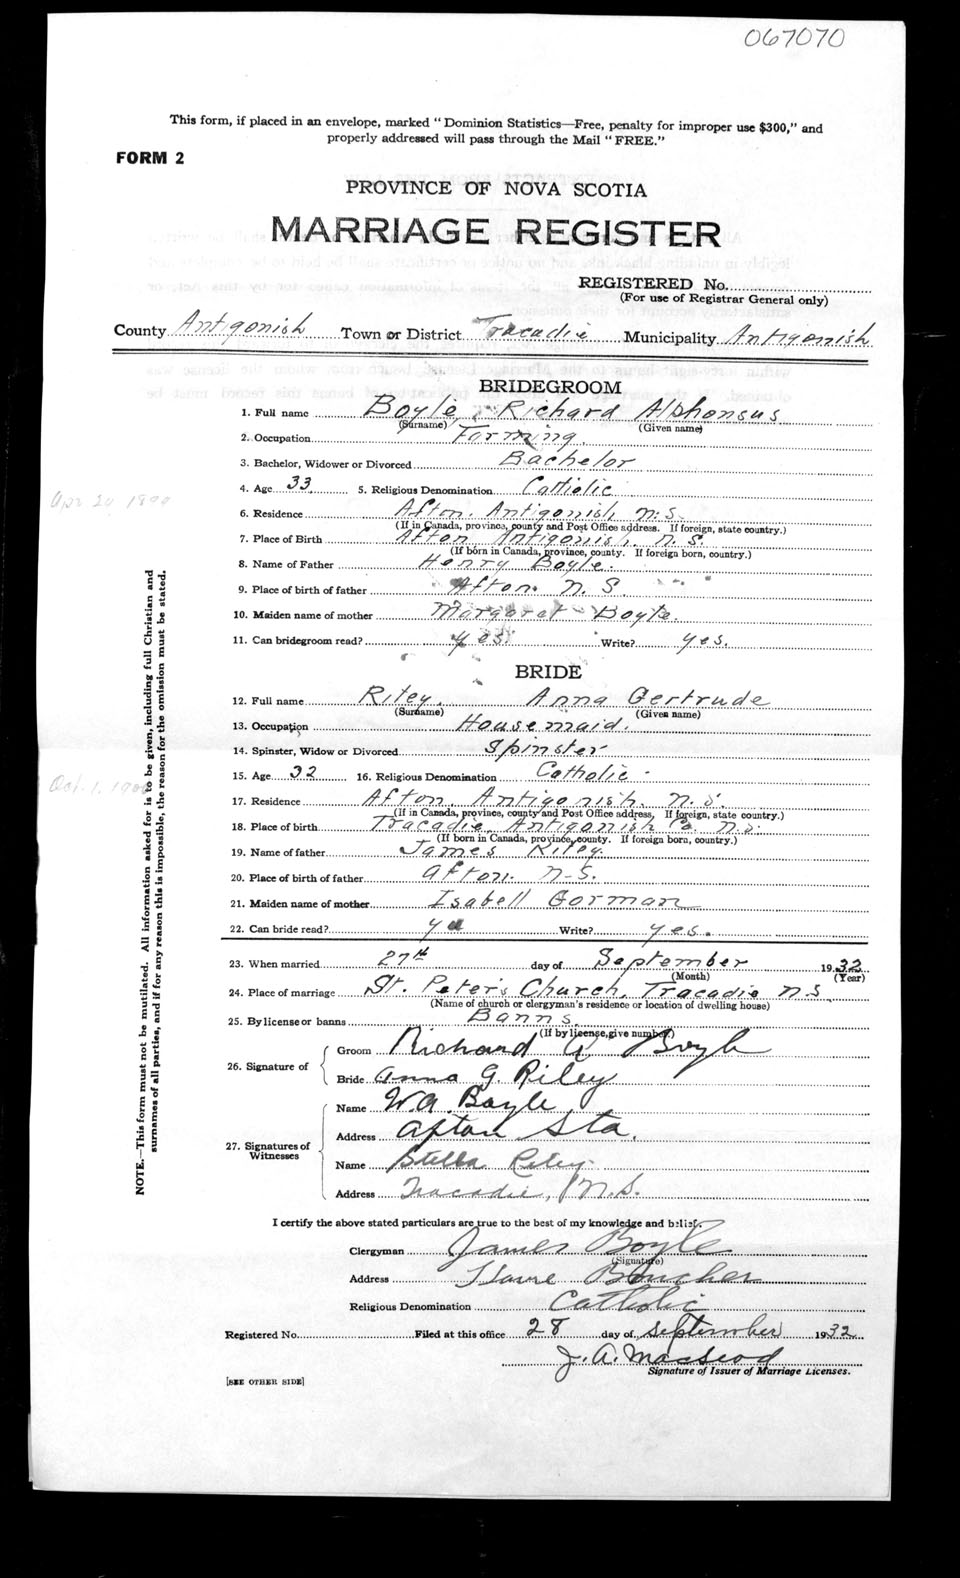 067070
This form, if placed in an envelope, marked "Dominion Statistics—Free, penalty for improper use $300," and
properly addressed will pass through the Mail "FREE."
FORM 2
PROVINCE OF NOVA SCOTIA
MARRIAGE REGISTER
REGISTERED No.
(For use of Registrar General only)
County Antigonish Town or District Tracadie Municipality Antigonish
BRIDEGROOM
1. Full name Boyle, Richard Alphonsus
(Surname) (Given name)
2. Occupation Farming.
3. Bachelor, Widower or Divorced Bachelor
4. Age 33 5. Religious Denomination Catholic
Apr 20 1899
6. Residence Afton. Antigonish, N.S.
(If in Canada, province, county and Post Office address. If foreign, state country.)
7. Place of Birth Afton Antigonish. N.S.
(If born in Canada, province, county. If foreign born, country.)
8. Name of Father Henry Boyle.
9. Place of birth of father Afton. N.S.
10. Maiden name of mother Margaret Boyle.
11. Can bridegroom read? yes. Write? yes.
BRIDE
12. Full name Riley, Anna Gertrude
(Surname) (Given name)
13. Occupation Housemaid.
14. Spinster, Widow or Divorced Spinster
15. Age 32 16. Religious Denomination Catholic
Oct. 1, 1900
17. Residence Afton, Antigonish, N.S.
(If in Canada, province, county and Post Office address, If foreign, state country.)
18. Place of birth Tracadie, Antigonish Co. N.S.
(If born in Canada, province, county. If foreign born, country.)
19. Name of father James Riley.
20. Place of birth of father Afton. N.S.
21. Maiden name of mother Isabell Gorman
22. Can bride read? yes Write? yes.
23. When married 27th day of September 1932
(Month) (Year)
24. Place of marriage St. Peter's Church, Tracadie N.S.
(Name of church or clergyman's residence or location of dwelling house)
25. By license or banns Banns
(If by license, give number)
26. Signature of
Groom Richard A Boyle
Bride Anna G. Riley
27. Signatures of
Witnesses
Name W.A. Boyle
Address Afton Sta.
Name Stella Riley
Address Tracadie, N.S.
I certify the above stated particulars are true to the best of my knowledge and belief.
Clergyman James Boyle
(Signature)
Address Havre Boucher
Religious Denomination Catholic
Registered No. Filed at this office 28 day of September 1932
J. A. MacLeod
Signature of Issuer of Marriage Licenses.
[SEE OTHER SIDE]
NOTE.—This form must not be mutilated. All information asked for is to be given, including full Christian and
surnames of all parties, and if for any reason this is impossible, the reason for the omission must be stated.